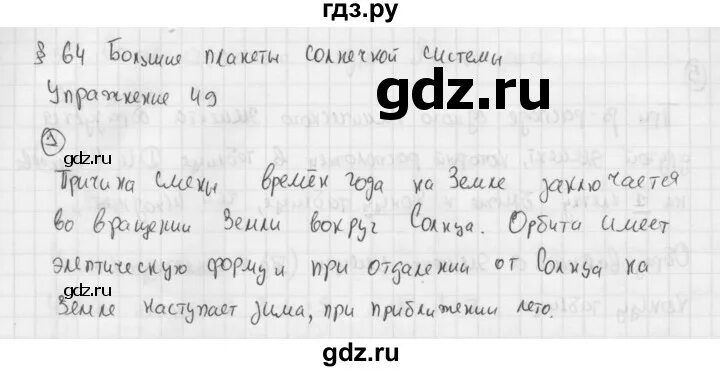 гдз.ру
§ 64 Большие планеты солнечной системы
Упражнение 49
gdz.ru
gdz.ru
1
gdz.ru
gdz.ru
Причина смены времён года на Земле заключается
во вращении Земли вокруг Солнца. Орбита имеет
элептическую форму и при отдалении от Солнца на
Земле наступает зима, при приближении лето.
gdz.ru
gdz.ru
gdz.ru